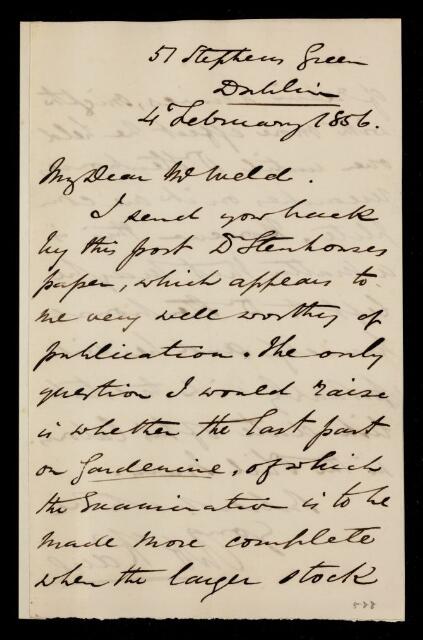 51 Stephens Green
Dublin
4 February 1856.
My Dear Mr Weld.
I send you back
by this post Dr Stenhouses
paper, which appears to
me very well worthy of
publication. The only
question I would raise
is whether the last part
on Gardenine, of which
the Examination is to be
made more complete
when the larger stock
588